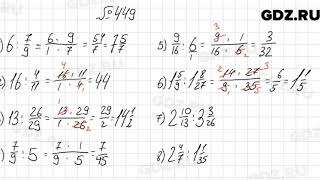 GDZ.RU
№449
) 6 : 7/9 = 6·9/1·7 = 54/7 = 7 5/7
5) 9/16 : 6/1 = 9·1/16·6 = 3/32
) 16 : 4/11 = 16·11/1·4 = 44
6) 1 5/9 : 1 8/27 = 14·27/9·35 = 6/5 = 1 1/5
) 13 : 26/29 = 13·29/1·26 = 29/2 = 14 1/2
7) 2 10/13 : 3 3/26
) 7/9 : 5 = 7·1/9·5 = 7/45
8) 2 4/7 : 1 1/35
GDZ.RU